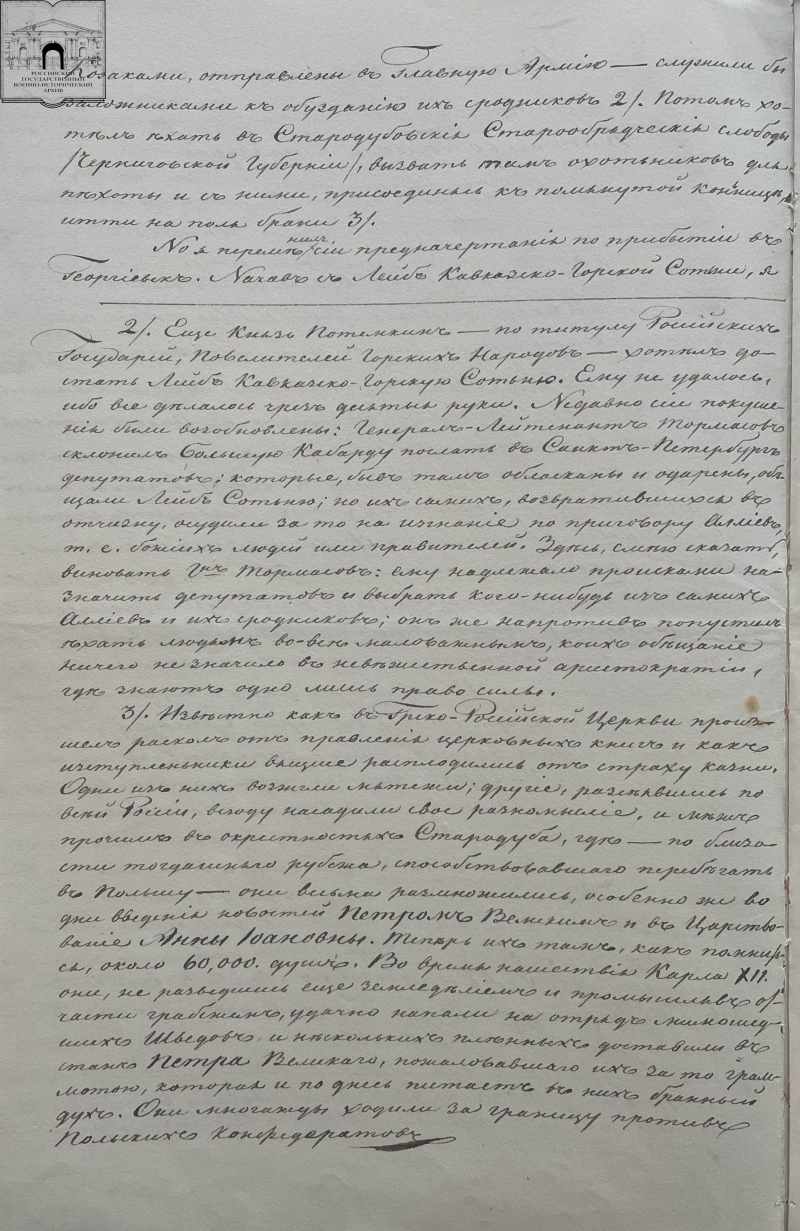 РОССИЙСКИЙ
ГОСУДАРСТВЕННЫЙ
ВОЕННО-ИСТОРИЧЕСКИЙ
АРХИВ
Козаками, отправлены въ Главную Армію — служили бы
заложниками къ обузданію ихъ сродниковъ 2/. Потомъ хо-
тѣлъ ѣхать въ Стародубовскія Старообрядческія слободы
/Черниговской Губерніи/, вызвать тамъ охотьниковъ для
пѣхоты и съ ними, присоединясь къ помянутой конницѣ,
итти на поля брани 3/.
Но я перемѣнилъ сіи предначертанія по прибытіи въ
Георгіевскъ. Начавъ съ Лейбъ Кавказко-Горской Сотьни, я
2/. Еще Князь Потемкинъ — по титулу Російскихъ
Государей, Повелителей Горскихъ Народовъ — хотѣлъ до-
стать Лейбъ Кавказко-Горскую Сотьню. Ему не удалось,
ибо все дѣлалось чрезъ десятыя руки. Недавно сіи покуше-
нія были возобновлены: Генералъ-Лейтенантъ Тормасовъ
склонилъ Большую Кабарду послать въ Санктъ-Петербургъ
депутатовъ; которые, бывъ тамъ обласканы и одарены, обѣ-
щали Лейбъ Сотьню; но ихъ самихъ, возвратившихся въ
отчизну, осудили за то на изгнаніе по приговору Алліевъ,
т. е. божіихъ людей или правителей. Здѣсь, смѣю сказать,
виноватъ Гнъ Тормасовъ: ему надлежало происками на-
значить депутатовъ и выбрать кого-нибудь изъ самихъ
Алліевъ и ихъ сродниковъ; онъ же напротивъ попустилъ
ѣхать людямъ во-все маловажнымъ, коихъ обѣщаніе
ничего не значило въ невѣжественной аристократіи,
гдѣ знаютъ одно лишь право силы.
3/. Извѣстно какъ въ Греко-Російской Церкви произо-
шелъ расколъ отъ правленія церковныхъ книгъ и какъ
изступленьники вящше расплодились отъ страху казни.
Одни изъ нихъ возжгли мятежи; другіе, разсѣявшись по
всѣй Росіи, всюду насадили свое разномысліе, и межъ
прочимъ въ окрестностяхъ Стародуба, гдѣ — по близо-
сти тогдашняго рубежа, способствовавшаго перебѣгать
въ Польшу — они весьма размножились, особенно же во
дни введенія новостей Петромъ Великимъ и въ Царство-
ваніе Анны Іоановны. Теперь ихъ тамъ, какъ помнит-
ся, около 60,000. душъ. Во время нашествія Карла XII.
они, не разведшись еще земледѣліемъ и промышлявъ от-
части грабежемъ, удачно напали на отрядъ мимошед-
шихъ Шведовъ и нѣсколькихъ плѣнныхъ доставили въ
станъ Петра Великаго, пожаловавшаго ихъ за то грам-
мотою, которая и по днесь питаетъ въ нихъ бранный
духъ. Они многажды ходили за границу противъ
Польскихъ Конфедератовъ